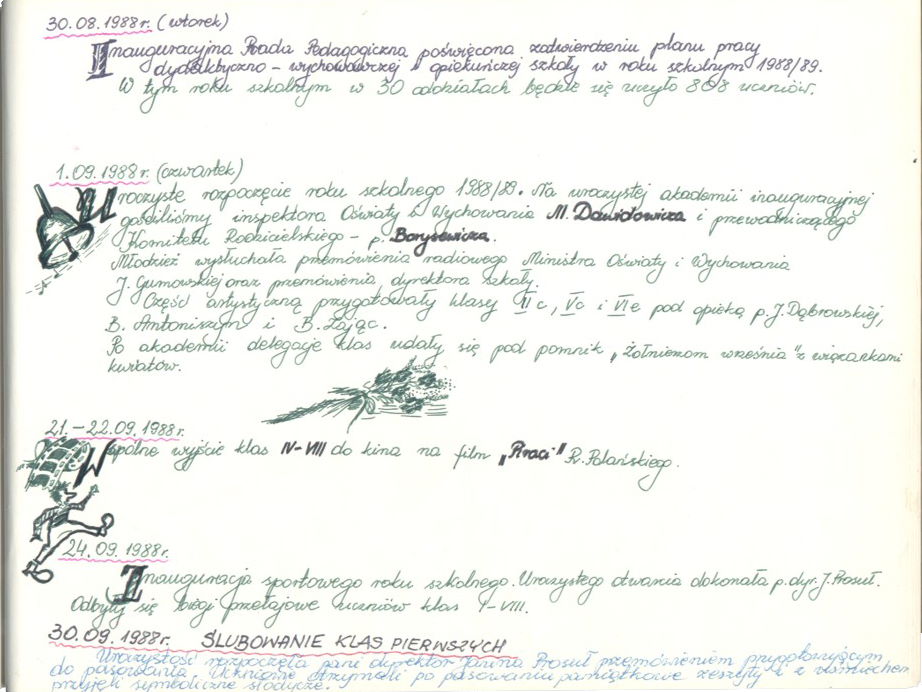 30.08.1988r. (wtorek)
Inauguracyjna Rada Pedagogiczna poświęcona zatwierdzeniu planu pracy
dydaktyczno - wychowawczej i opiekuńczej szkoły w roku szkolnym 1988/89.
W tym roku szkolnym w 30 oddziałach będzie się uczyło 868 uczniów.
1.09.1988r. (czwartek)
Uroczyste rozpoczęcie roku szkolnego 1988/89. Na uroczystej akademii inauguracyjnej
gościliśmy inspektora Oświaty i Wychowania M. Dawidowicza i przewodniczącego
Komitetu Rodzicielskiego - p. Borysewicza.
Młodzież wysłuchała przemówienia radiowego Ministra Oświaty i Wychowania
J. Gumowskiej oraz przemówienia dyrektora szkoły.
Część artystyczną przygotowały klasy II c, V c i VI e pod opieką p. J. Dąbrowskiej,
B. Antoniszyn i B. Zając.
Po akademii delegacje klas udały się pod pomnik „Żołnierzom września" z wiązankami
kwiatów.
21.-22.09.1988r.
Wspólne wyjście klas IV-VIII do kina na film „Piraci" R. Polańskiego.
24.09.1988r.
Inauguracja sportowego roku szkolnego. Uroczystego otwarcia dokonała p. dyr. J. Prosuł.
Odbyły się biegi przełajowe uczniów klas I-VIII.
30.09.1988r. ŚLUBOWANIE KLAS PIERWSZYCH
Uroczystość rozpoczęła pani dyrektor Janina Prosuł przemówieniem przygotowującym
do pasowania. Uczniowie otrzymali po pasowaniu pamiątkowe zeszyty i z uśmiechem
przyjęli symboliczne słodycze.